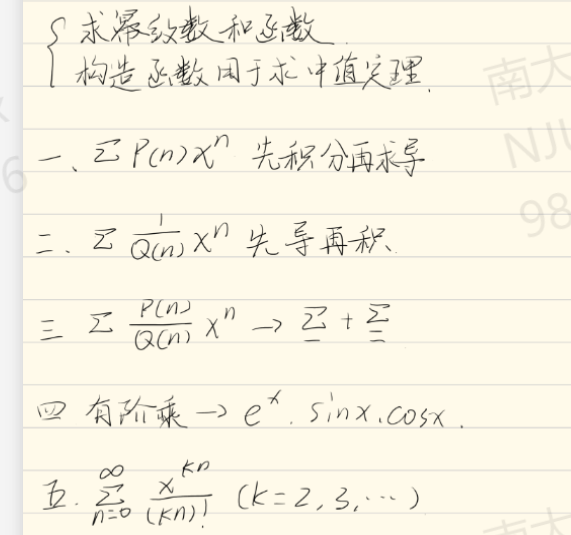 { 求幂级数和函数.
构造函数用于求中值定理.
一、Σ P(n)xⁿ 先积分再求导
二、Σ 1/Q(n) xⁿ 先导再积.
三 Σ P(n)/Q(n) xⁿ → Σ + Σ
四 有阶乘 → eˣ. sinx. cosx.
五. Σ_{n=0}^{∞} x^{kn}/(kn)! (k=2,3,…)
南大
NJU
98
6
南大